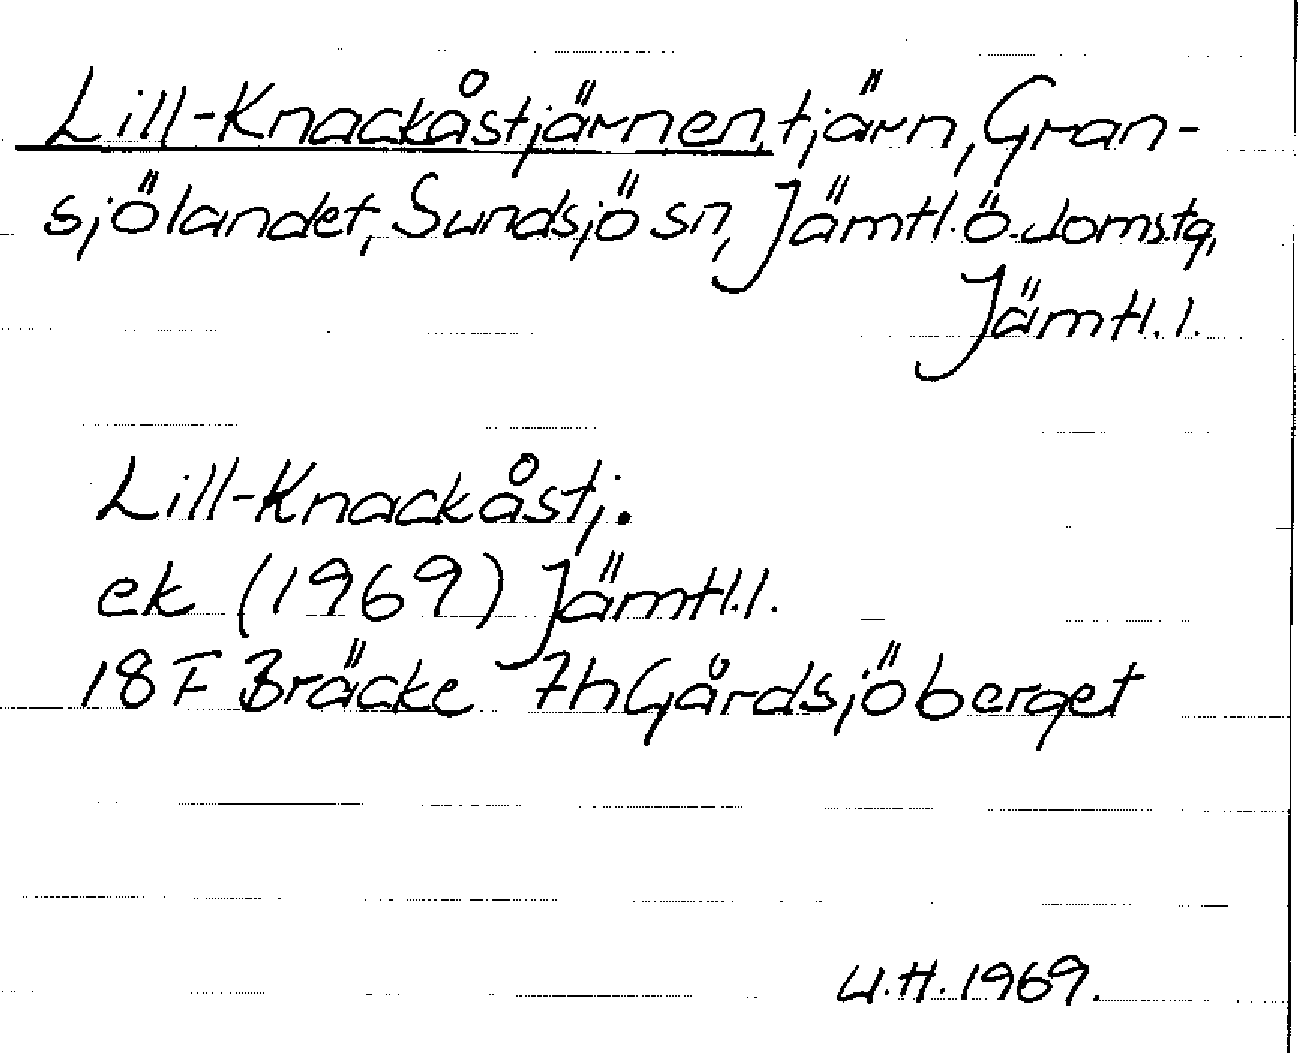 Lill-Knackåstjärnen, tjärn, Gran-
sjölandet, Sundsjö sn, Jämtl. ö. domstg,
Jämtl. l.
Lill-Knackåstj.
ek (1969) Jämtl. l.
18 F Bräcke 7h Gårdsjöberget
U.H. 1969.